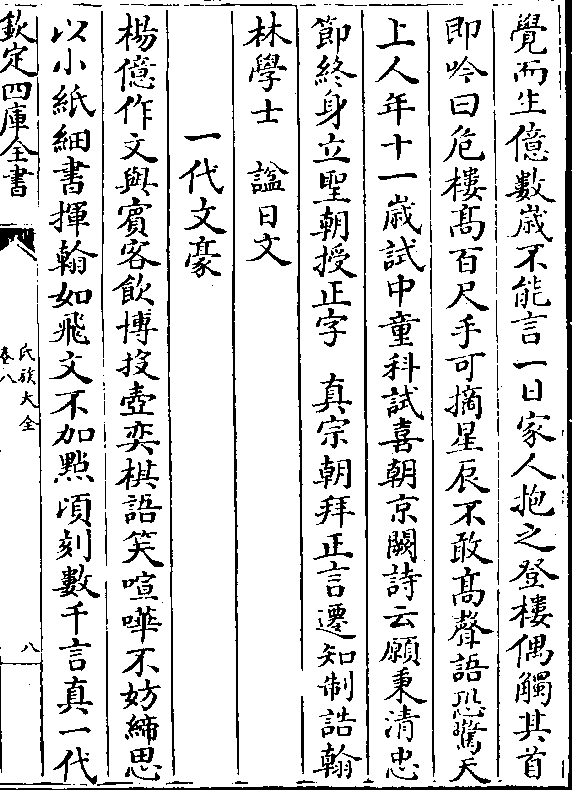 覺而生億數歲不能言一日家人抱之登樓偶觸其首
即吟曰危樓髙百尺手可摘星辰不敢髙聲語恐驚天
上人年十一歲試中童科試喜朝京闕詩云願秉清忠
節終身立聖朝授正字　真宗朝拜正言遷知制誥翰
林學士　諡曰文
一代文豪
楊億作文與賓客飲博投壺奕棋語笑喧嘩不妨締思
以小紙細書揮翰如飛文不加點頃刻數千言真一代
欽定四庫全書
氏族大全
卷八
八